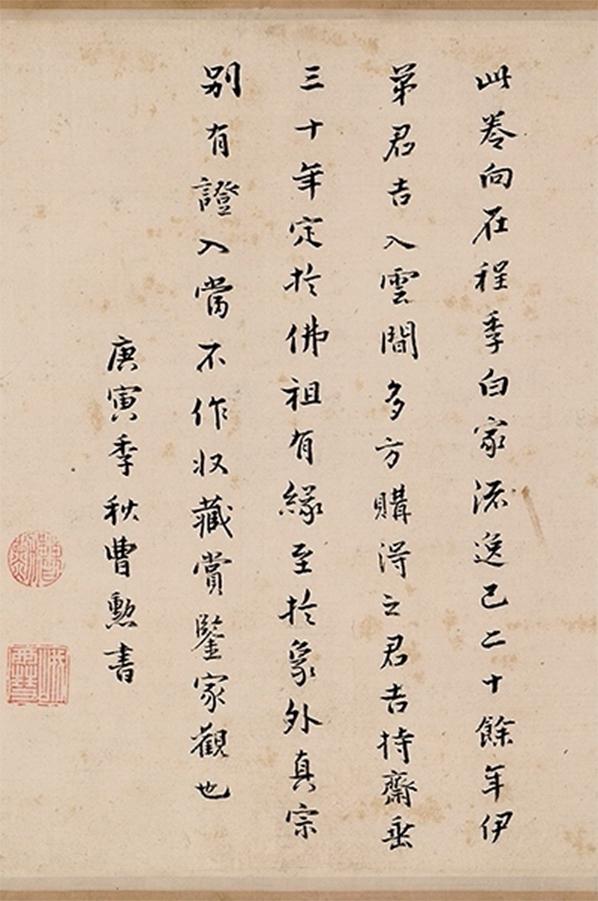 此卷向在程季白家流逸已二十餘年伊
弟君吉入雲間多方購得之君吉持齋垂
三十年定於佛祖有緣至於象外真宗
別有證入當不作收藏賞鑒家觀也
庚寅季秋曹勳書